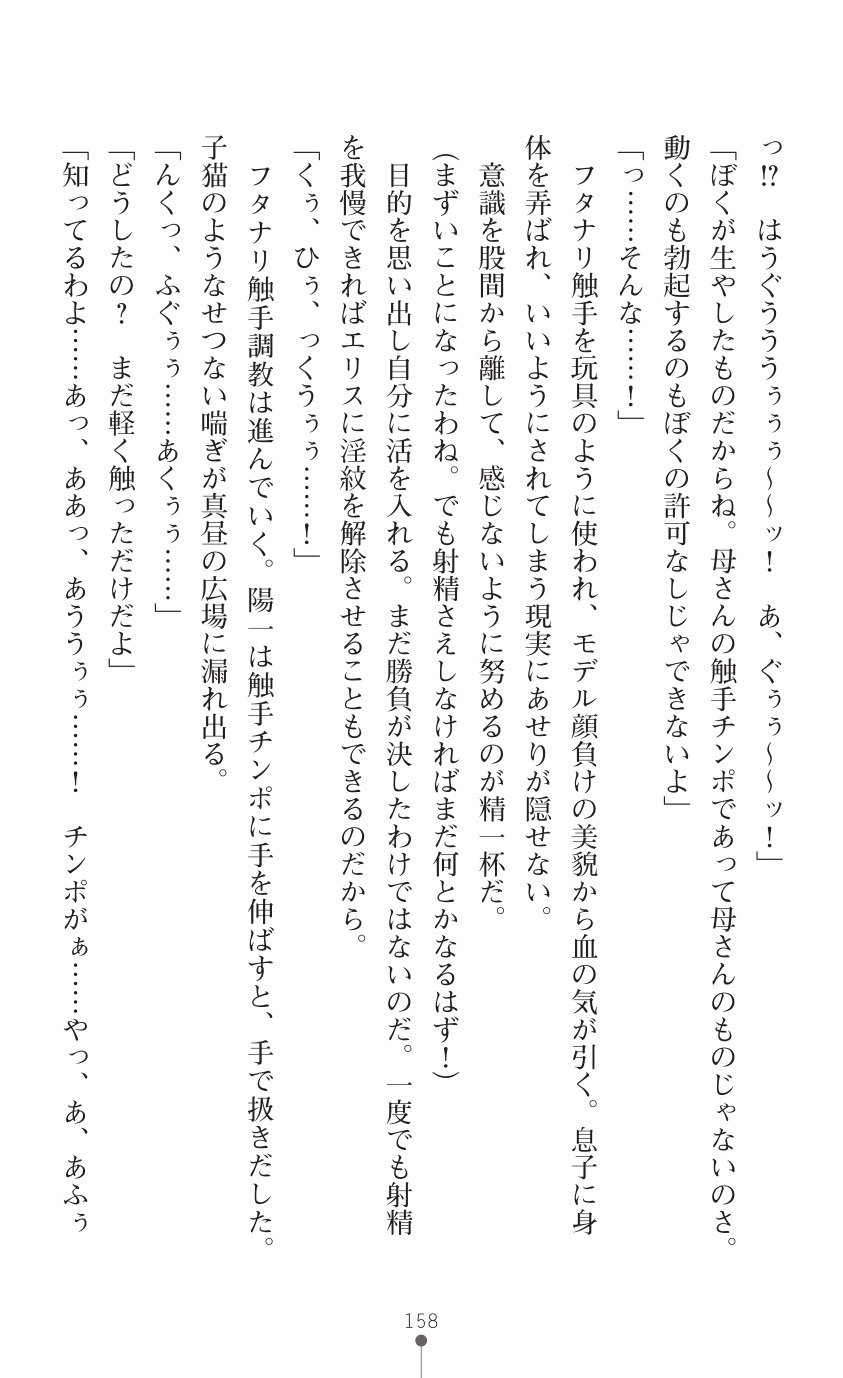 っ!?　はうぐうううぅぅぅ～～ッ！　あ、ぐぅぅ～～ッ！」
「ぼくが生やしたものだからね。母さんの触手チンポであって母さんのものじゃないのさ。
動くのも勃起するのもぼくの許可なしじゃできないよ」
「っ……そんな……！」
　フタナリ触手を玩具のように使われ、モデル顔負けの美貌から血の気が引く。息子に身
体を弄ばれ、いいようにされてしまう現実にあせりが隠せない。
　意識を股間から離して、感じないように努めるのが精一杯だ。
（まずいことになったわね。でも射精さえしなければまだ何とかなるはず！）
　目的を思い出し自分に活を入れる。まだ勝負が決したわけではないのだ。一度でも射精
を我慢できればエリスに淫紋を解除させることもできるのだから。
「くぅ、ひぅ、っくうぅぅ……！」
　フタナリ触手調教は進んでいく。陽一は触手チンポに手を伸ばすと、手で扱きだした。
子猫のようなせつない喘ぎが真昼の広場に漏れ出る。
「んくっ、ふぐぅぅ……あくぅぅ……」
「どうしたの？　まだ軽く触っただけだよ」
「知ってるわよ……あっ、ああっ、あううぅぅ……！　チンポがぁ……やっ、あ、あふぅ
158